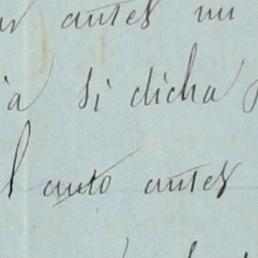 antes un
ia si dicha
l auto antes